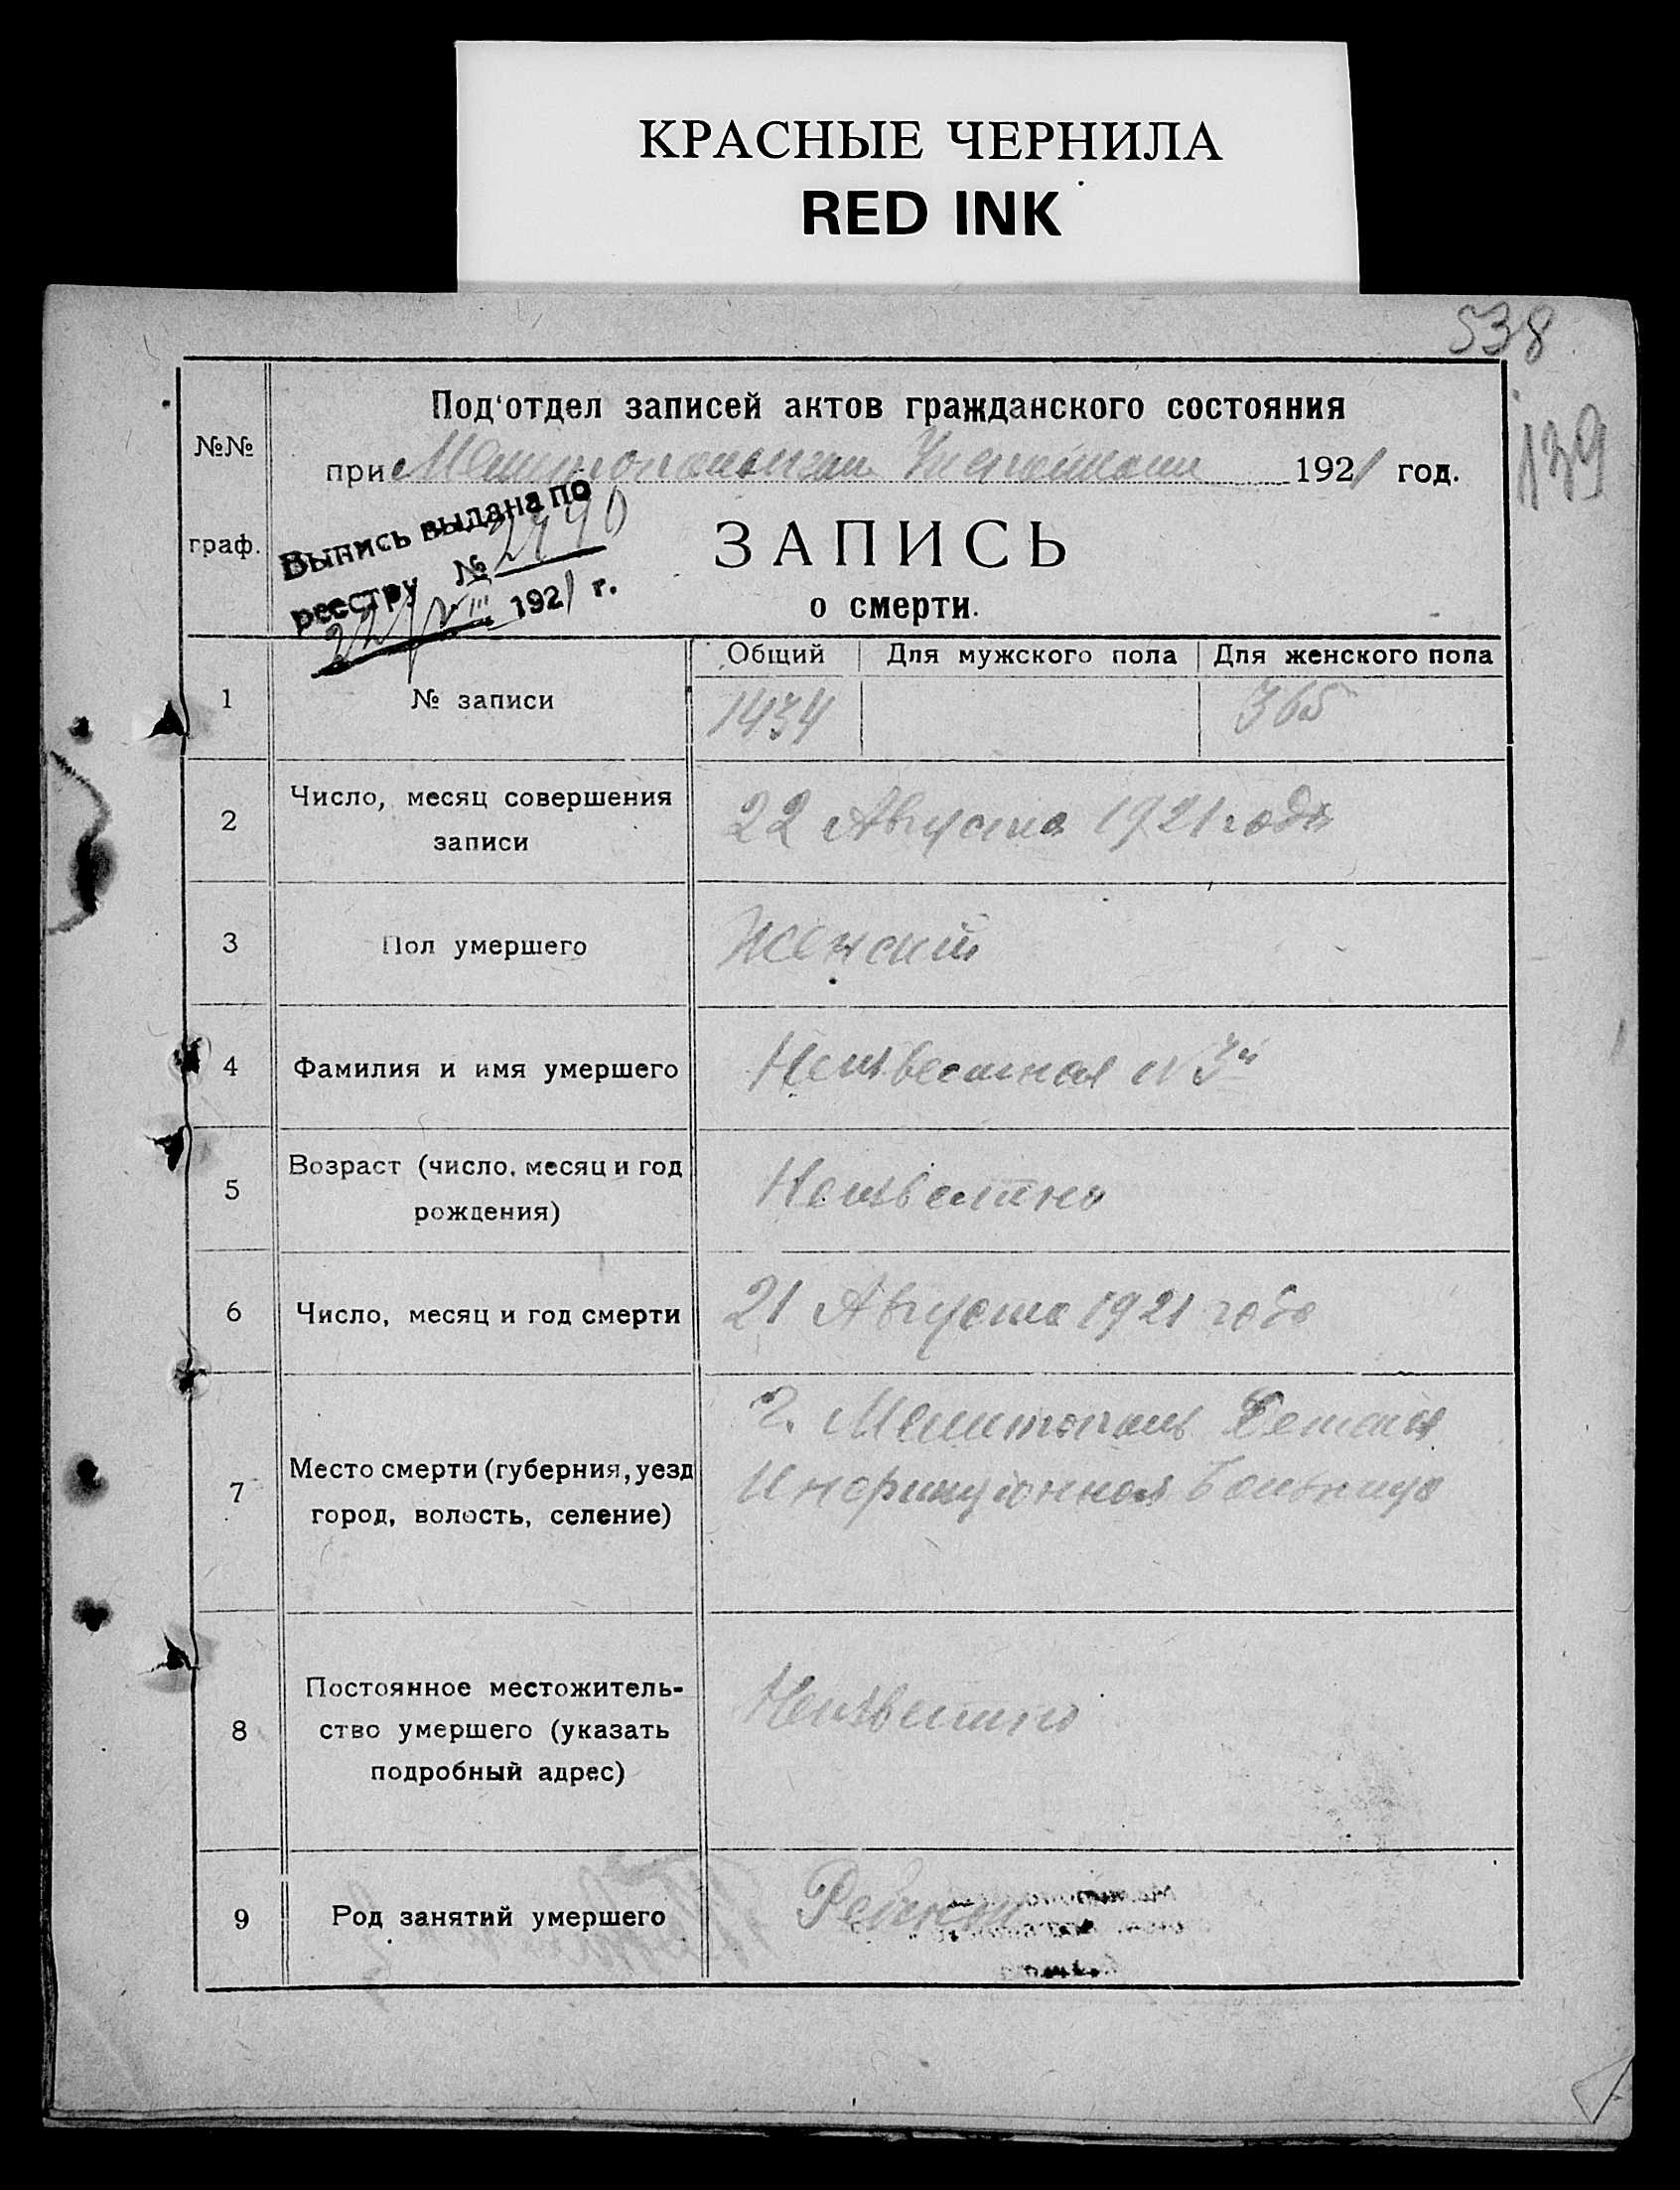 КРАСНЫЕ ЧЕРНИЛА
RED INK
538
139
№№
граф.
Под‘отдел записей актов гражданского состояния
при Мелитопольском Уисполкоме 1921 год.
Выпись выдана по
реестру № 2790
22/VIII 1921 г.
ЗАПИСЬ
о смерти.
Общий Для мужского пола Для женского пола
1 № записи 1434 365
2 Число, месяц совершения
записи
22 Августа 1921 года
3 Пол умершего Женский
4 Фамилия и имя умершего Неизвестная N 3й
5 Возраст (число, месяц и год
рождения)
Неизвестно
6 Число, месяц и год смерти 21 Августа 1921 года
7 Место смерти (губерния, уезд
город, волость, селение)
г. Мелитополь Детская
Инфекционная Больница
8 Постоянное местожитель-
ство умершего (указать
подробный адрес)
Неизвестно
9 Род занятий умершего